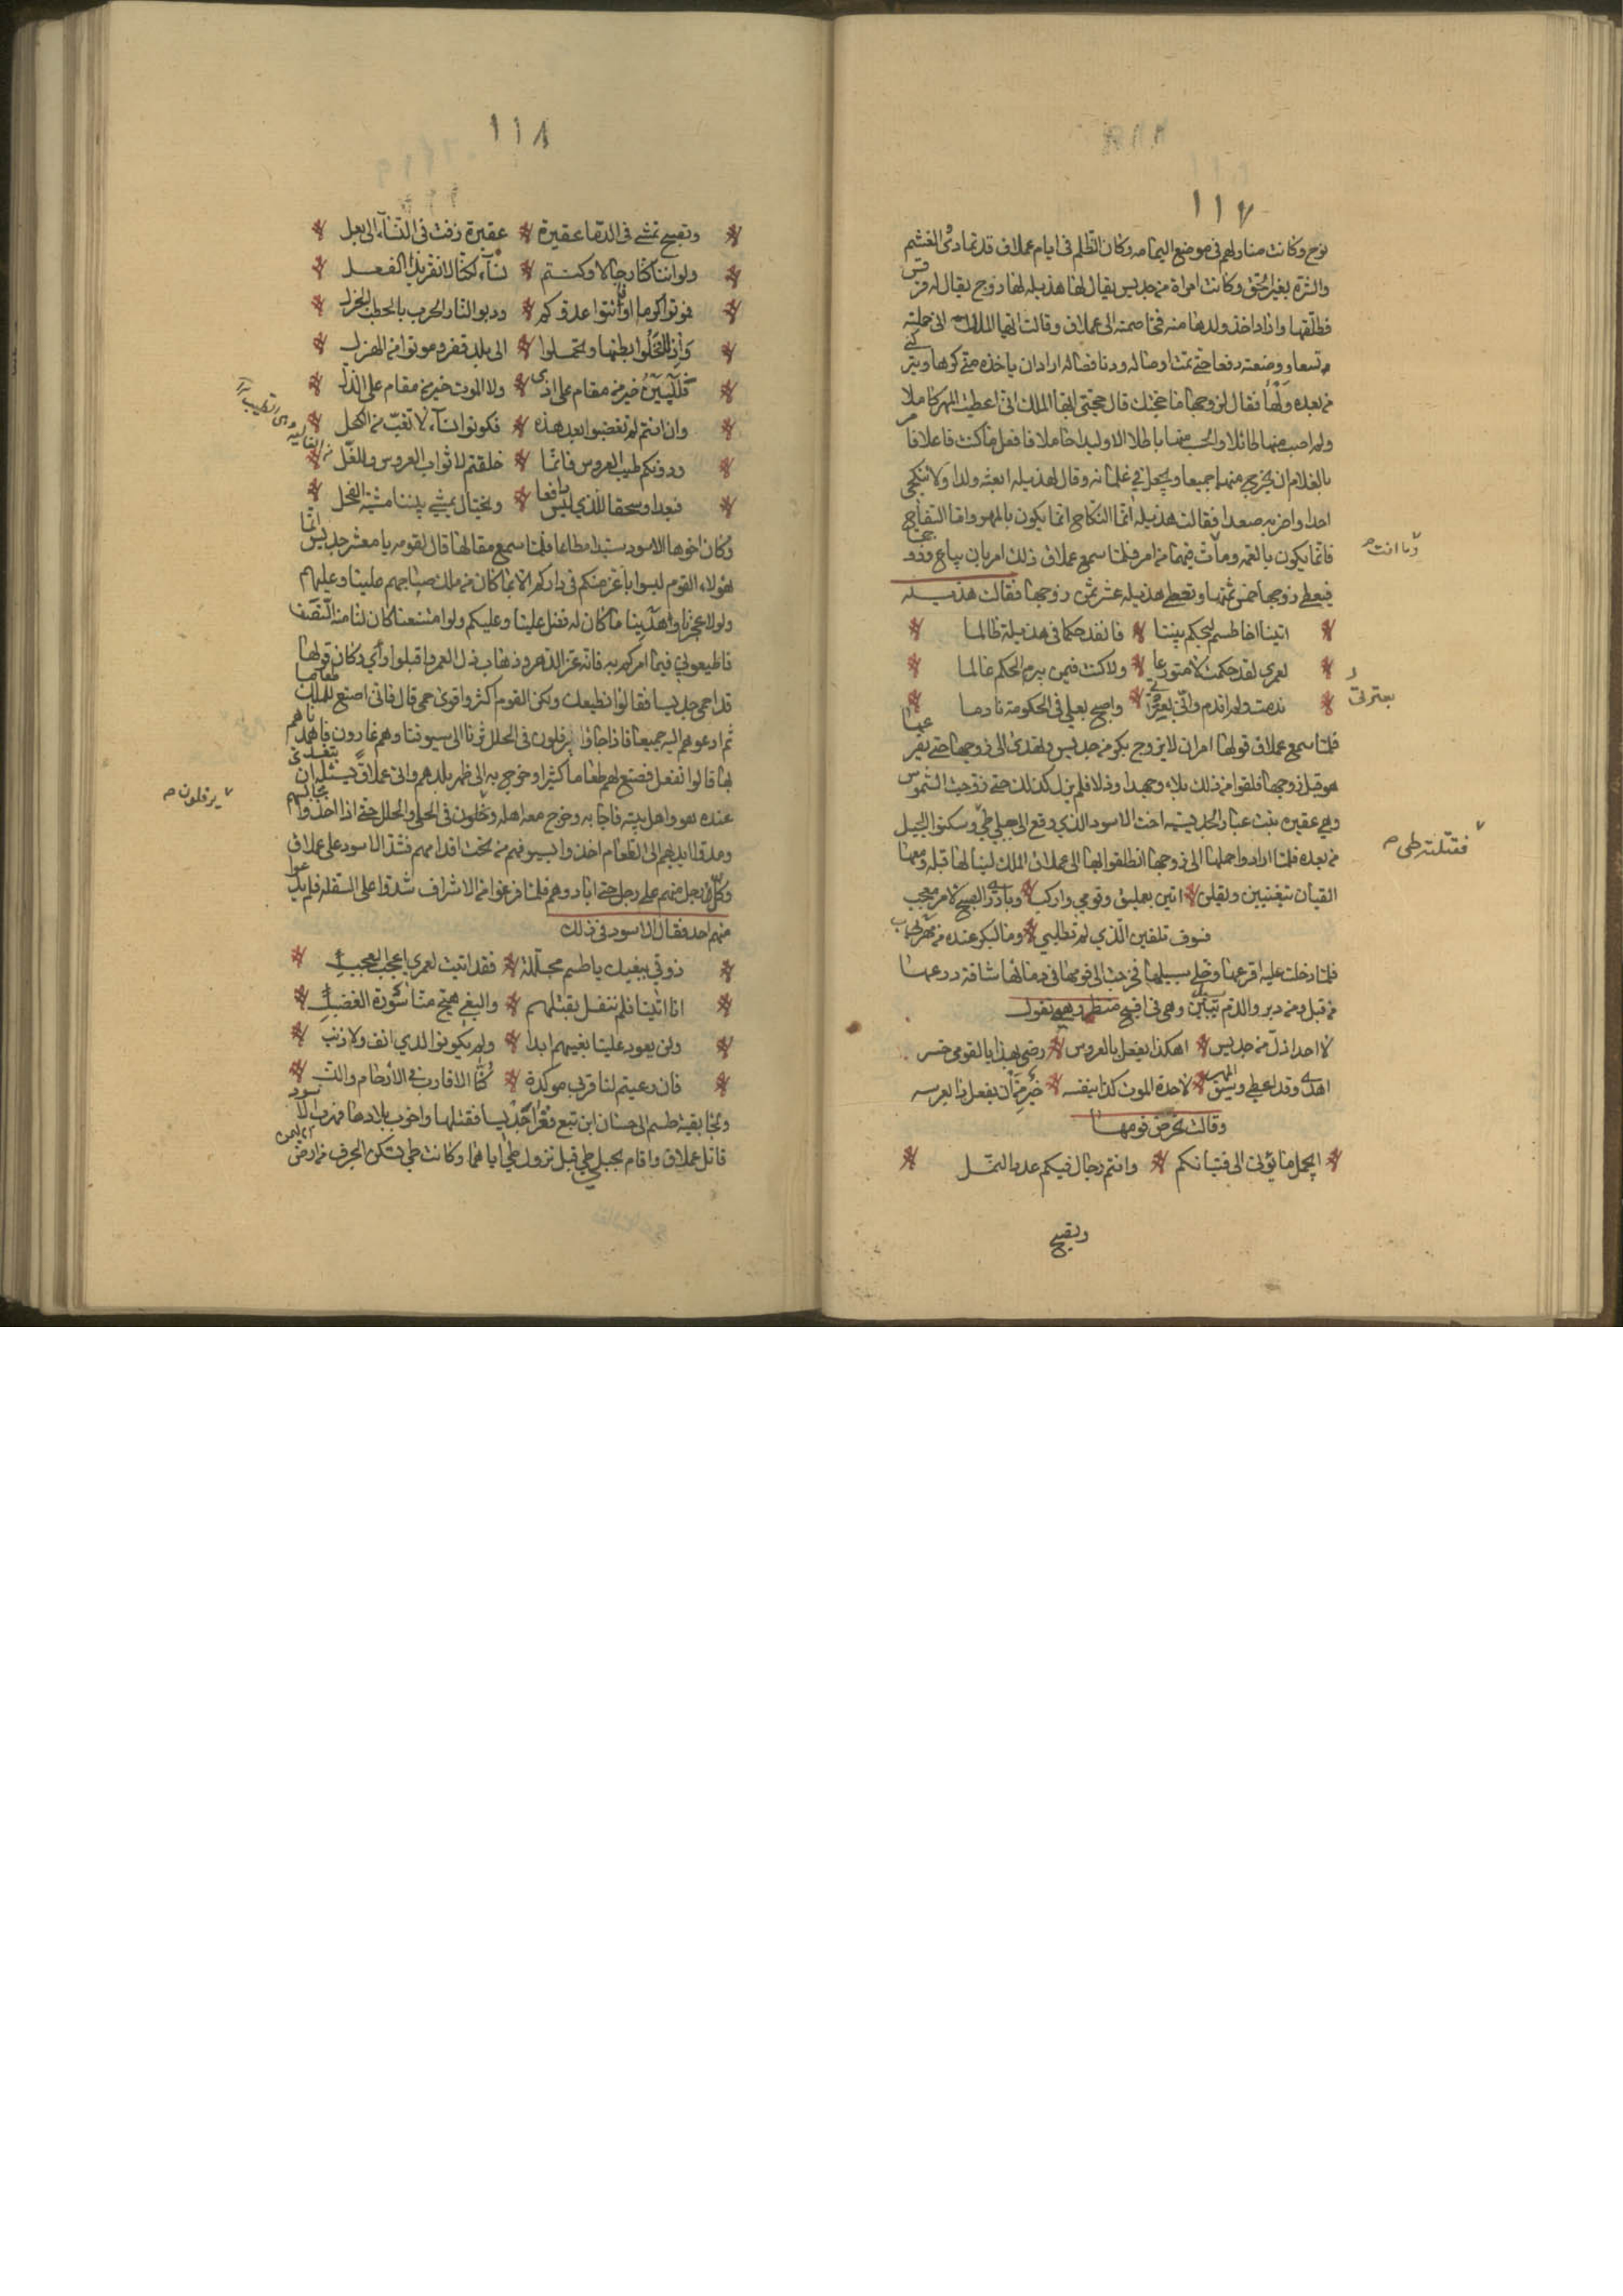 ١١٧
نوح وكانت منازلهم في موضع اليمامه وكان الظلم في ايام عملاق قد تمادى الغشم
والشره بغير الحق وكانت امراة من جديس يقال لها هذيله لها زوج يقال له قرقس
فطلقها واراد اخذ ولدها منه فخاصمته الى عملاق وقالت ايها الملك اني حملته
تسعا ووضعته دفعا حتى تمت اوصاله ودنا فصاله اراد ان ياخذه مني كرها ويتركني
من بعده ولها فقال لزوجها ما حجتك قال حجتي ايها الملك اني اعطيت المهر كاملا
ولم اصب منها طائلا والجب منها باطلا الا وليدا خاملا فافعل ما كنت فاعلا فامر
بالغلام ان يخرج منهما جميعا ويجعل في غلمانه وقال لهذيله ابغيه ولدا ولا تنكحي
احدا واجزيه صفدا فقالت هذيله انما النكاح انما يكون بالمهر واما السفاح
فانما يكون بالقهر وما فيهما من امر فلما سمع عملاق ذلك امر بان يباع وزوجها
فيعطى زوجها خمس ثمنها وتعطى هذيله عشر ثمن زوجها فقالت هذيله
اتينا اخا طسم ليحكم بيننا فانفذ حكما في هذيلة ظالما
لعمري لقد حكمت لا متورعا ولا كنت فيمن يبرم الحكم عالما
ندمت ولم اندم واني بعثرتي واصبح بعلي في الحكومة نادما
فلما سمع عملاق قولها امر ان لا يزوج بكر من جديس وتهدى الى زوجها حتى يفرعها
هو قبل زوجها فلقوا من ذلك بلاء وجهدا وذلا فلم يزل كذلك حتى زوجت الشموس
وهي عفيره بنت عباد الجديسيه اخت الاسود الذي وقع الى جبلي طي وسكنوا الجبل
من بعده فلما ارادوا حملها الى زوجها انطلقوا بها الى عملاق الملك لينالها قبله ومعها
القيان يتغنيين ويقلن ابدي بعمليق وقومي واركبي وبادري الصبح لامر معجب
فسوف تلقين الذي لم تطلبي وما لبكر عنده من مهرب
فلما دخلت عليه افترعها وخلى سبيلها فخرجت الى قومها في دمائها شاقة درعها
من قبل ومن دبر والدم يسيل وهي في اقبح منظر وهي تقول
لا احد اذل من جديس اهكذا يفعل بالعروس رضي بهذا يا لقومي حر
اهدى وقد اعطى وسيق المهر لاخذة الموت كذا لنفسه خير من ان يفعل ذا بعرسه
وقالت تحرض قومها
ايجمل ما يؤتى الى فتياتكم وانتم رجال فيكم عدد النمل
وتصبح
وما انت
بعثرتي
فقتلته طي
١١٨
وتصبح تمشي في الدما عفيرة عفيرة زفت في النساء الى بعل
ولو اننا كنا رجالا وكنتم نساء لكنا لا نقر بذا الفعل
فموتوا كراما او اميتوا عدوكم ودبوا لنار الحرب بالحطب الجزل
والا فخلوا بطنها وتحملوا الى بلد قفر وموتوا من الهزل
فللبين خير من مقام على اذى وللموت خير من مقام على الذل
وان انتم لم تغضبوا بعد هذه فكونوا نساء لا تغب من الكحل
ودونكم طيب العروس فانما خلقتم لاثواب العروس وللغسل
فبعدا وسحقا للذي ليس دافعا ويختال يمشي بيننا مشية الفحل
وكان اخوها الاسود سيدا مطاعا فلما سمع مقالها قال لقومه يا معشر جديس انما
هولاء القوم ليسوا باعز منكم في داركم الا بما كان من ملك صاحبهم علينا وعليهم
ولولا عجزنا وادهاننا ما كان له فضل علينا وعليكم ولو امتنعنا كان لنا منه النصف
فاطيعوني فيما امركم به فانه عز الدهر وذهاب ذل العمر واقبلوا رأي وكان قولها
قد احمى جديسا فقالوا نطيعك ولكن القوم اكثر واقوى حمى قال فاني اصنع للملك طعاما
ثم ادعوهم اليه جميعا فاذا جاؤا يرفلون في الحلل ثرنا الى سيوفنا وهم غارون فاهمدناهم
بها قالوا نفعل فصنع لهم طعاما كثيرا وخرج به الى ظهر بلدهم واتى عملاق يسئله ان يتغدى
عنده هو واهل بيته فاجابه وخرج معه اهله يرفلون في الحلي والحلل حتى اذا اخذوا مجالسهم
ومدوا ايديهم الى الطعام اخذوا سيوفهم من تحت اقدامهم فشد الاسود على عملاق
وكل رجل منهم على رجل حتى ابادوهم فلما فرغوا من الاشراف شدوا على السفله فلم يدعوا
منهم احد فقال الاسود في ذلك
ذوقي ببغيك يا طسم مجللة فقد اتيت لعمري اعجب العجب
انا اتينا فلم ننفك بقتلهم والبغي هيج منا سورة الغضب
ولن يعود علينا بغيهم ابدا ولم يكونوا الذي انف ولا ذنب
فان رعيتم لنا قربى موكدة كنا الاقارب في الأرحام والنسب
ونجا بقية طسم الى حسان ابن تبع فغزا جديسا فقتلها واخرب بلادها فهرب الاسود
قاتل عملاق واقام بجبلي طي قبل نزول طي اياهما وكانت طي تسكن الجرف من ارض اليمن
يرفلون